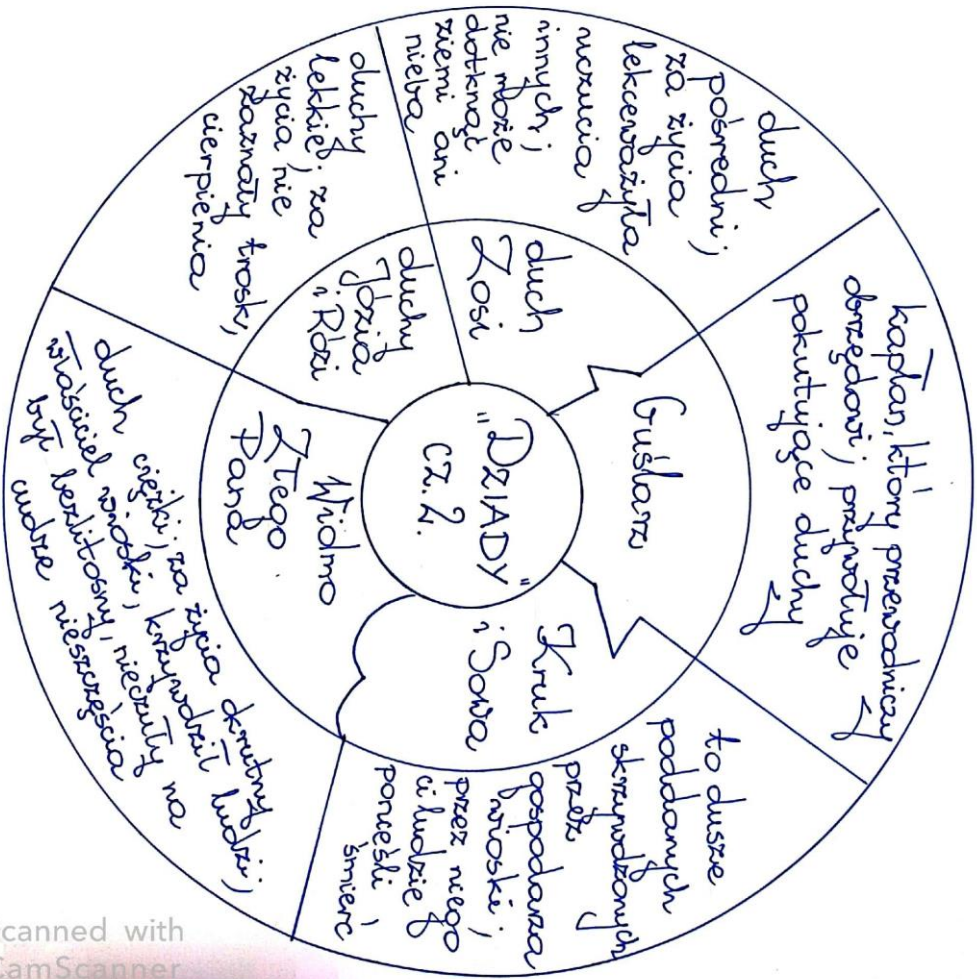 "DZIADY"
CZ. 2.
Guślarz
kapłan, który przewodniczy
obrzędowi; przywołuje
pokutujące duchy
Kruk
i Sowa
to dusze
poddanych
skrzywdzonych
przez
gospodarza
wioski;
przez niego
ci ludzie
ponieśli
śmierć
Widmo
Złego
Pana
duch ciężki; za życia okrutny
właściciel wioski; krzywdził ludzi;
był bezlitosny, nieczuły na
cudze nieszczęścia
duchy
Józia
i Rózi
duchy
lekkie; za
życia nie
zaznały trosk,
cierpienia
duch
Zosi
duch
pośredni;
za życia
lekceważyła
uczucia
innych;
nie może
dotknąć
ziemi ani
nieba
canned with
CamScanner